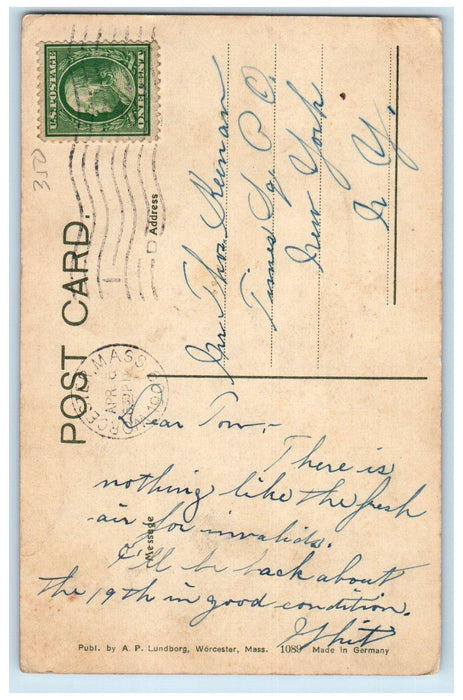 U.S. POSTAGE
ONE CENT
350
POST CARD.
Address
MASS.
APR
1909
Mr Thos. Keenan
Times Sq. P.O.
New York
N. Y.
Dear Tom,-
There is
nothing like the fresh
air for invalids.
Message
I'll be back about
the 19th in good condition.
Whit
Publ. by A. P. Lundborg, Worcester, Mass. 1089 Made in Germany